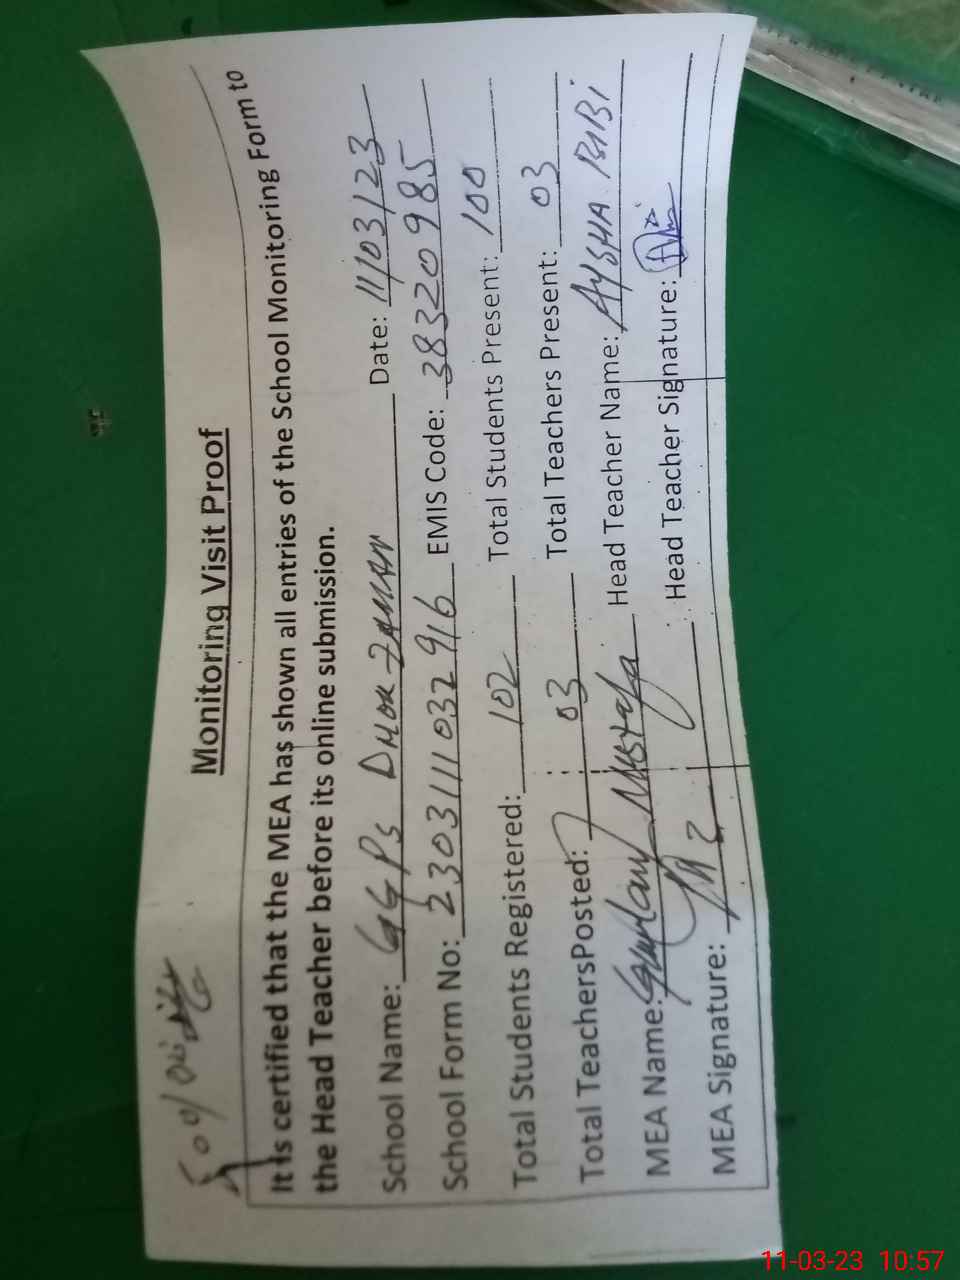 Monitoring Visit Proof
It is certified that the MEA has shown all entries of the School Monitoring Form to
the Head Teacher before its online submission.
School Name: GGPS DHOK ZAMAN Date: 11/03/23
School Form No: 230311032916 EMIS Code: 38320985
Total Students Registered: 102 Total Students Present: 100
Total TeachersPosted: 03 Total Teachers Present: 03
MEA Name: Ghulam Mustafa Head Teacher Name: AYSHA BIBI
MEA Signature: Head Teacher Signature:
11-03-23 10:57